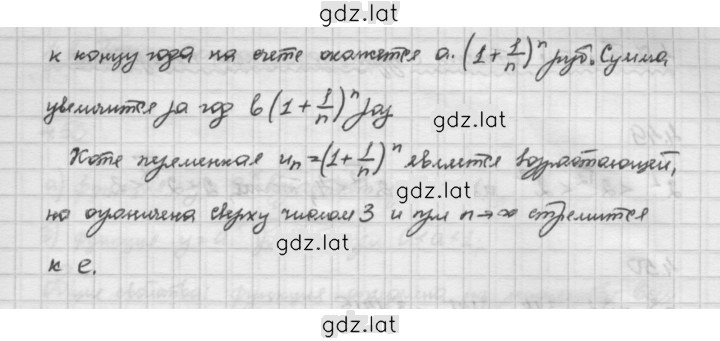 gdz.lat
к концу года на счете окажется a·(1+1/n)^n руб. Сумма
увеличится за год в (1+1/n)^n раз
gdz.lat
Хотя переменная u_n=(1+1/n)^n является возрастающей,
но ограничена сверху числом 3 и при n→∞ стремится
gdz.lat
к e.
gdz.lat